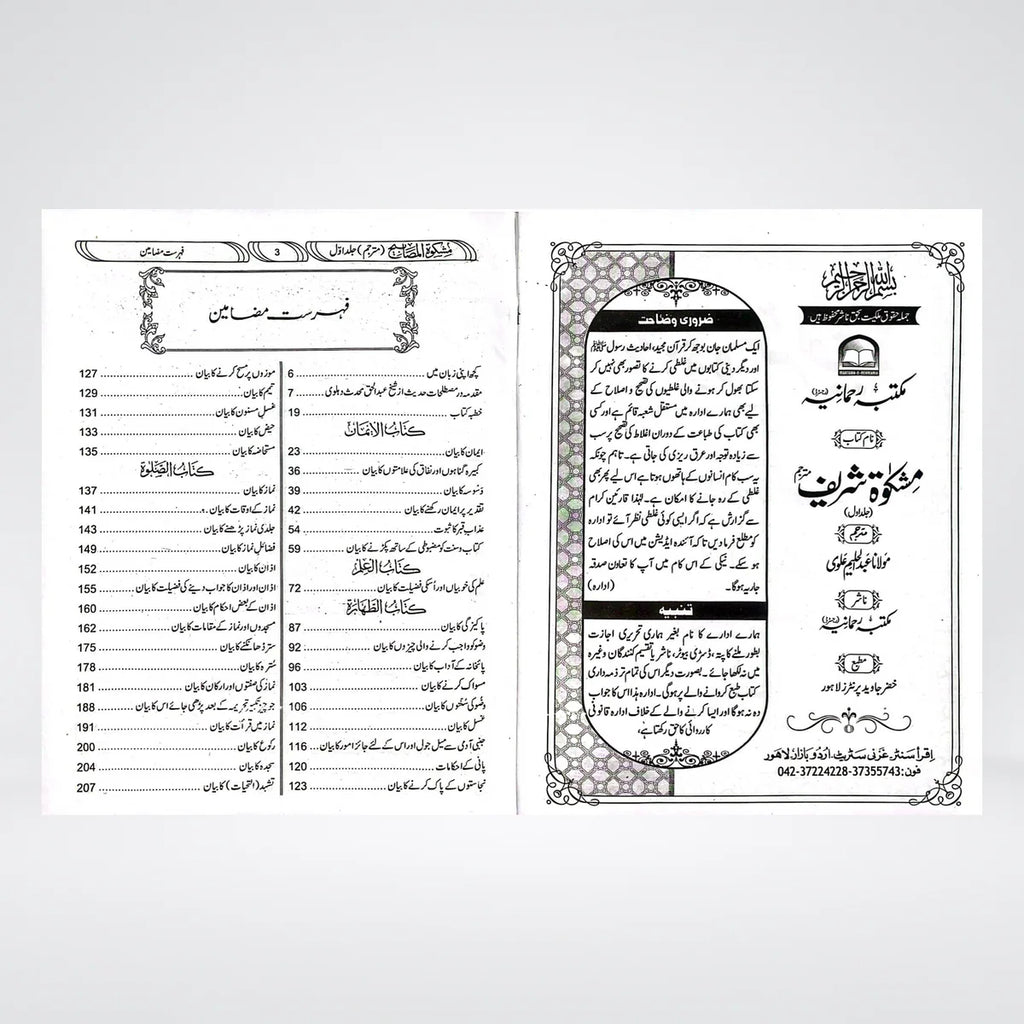 بسم اللہ الرحمن الرحیم
جملہ حقوق ملکیت بحق ناشر محفوظ ہیں
MAKTABA-E-REHMANIA
مکتبہ رحمانیہ (رجسٹرڈ)
نام کتاب
مشکوٰۃ شریف مترجم
(جلد اول)
مترجم
مولانا عبدالحلیم علوی
ناشر
مکتبہ رحمانیہ (رجسٹرڈ)
مطبع
خضر جاوید پرنٹرز لاہور
اِقرأ سنٹر، غزنی سٹریٹ، اُردو بازار، لاہور
فون: 042-37224228-37355743
ضروری وضاحت
ایک مسلمان جان بوجھ کر قرآن مجید، احادیث رسول ﷺ
اور دیگر دینی کتابوں میں غلطی کرنے کا تصور بھی نہیں کر
سکتا بھول کر ہونے والی غلطیوں کی تصحیح و اصلاح کے
لیے بھی ہمارے ادارہ میں مستقل شعبہ قائم ہے اور کسی
بھی کتاب کی طباعت کے دوران اغلاط کی تصحیح پر سب
سے زیادہ توجہ اور عرق ریزی کی جاتی ہے۔ تاہم چونکہ
یہ سب کام انسانوں کے ہاتھوں ہوتا ہے اس لیے پھر بھی
غلطی کے رہ جانے کا امکان ہے۔ لہٰذا قارئین کرام
سے گزارش ہے کہ اگر ایسی کوئی غلطی نظر آئے تو ادارہ
کو مطلع فرما دیں تاکہ آئندہ ایڈیشن میں اس کی اصلاح
ہو سکے۔ نیکی کے اس کام میں آپ کا تعاون صدقہ
جاریہ ہوگا۔ (ادارہ)
تنبیہ
ہمارے ادارے کا نام بغیر ہماری تحریری اجازت
بطور ملنے کا پتہ، ڈسٹری بیوٹر، ناشر یا تقسیم کنندگان وغیرہ
میں نہ لکھا جائے۔ بصورت دیگر اس کی تمام تر ذمہ داری
کتاب طبع کروانے والے پر ہوگی۔ ادارہ ہذا اس کا جواب
دہ نہ ہوگا اور ایسا کرنے والے کے خلاف ادارہ قانونی
کارروائی کا حق رکھتا ہے۔
مشکوٰۃ المصابیح (مترجم) جلد اول 3 فہرست مضامین
فہرست مضامین
کچھ اپنی زبان میں ... 6
مقدمہ در مصطلحات حدیث از شیخ عبدالحق محدث دہلوی ... 7
خطبہ کتاب ... 19
کتاب الایمان
ایمان کا بیان ... 23
کبیرہ گناہوں اور نفاق کی علامتوں کا بیان ... 36
وسوسہ کا بیان ... 39
تقدیر پر ایمان رکھنے کا بیان ... 42
عذاب قبر کا ثبوت ... 54
کتاب و سنت کو مضبوطی کے ساتھ پکڑنے کا بیان ... 59
کتاب العلم
علم کی خوبیاں اور اُسکی فضیلت کا بیان ... 72
کتاب الطہارۃ
پاکیزگی کا بیان ... 87
وضو کو واجب کرنے والی چیزوں کا بیان ... 92
پائخانہ کے آداب کا بیان ... 96
مسواک کرنے کا بیان ... 103
وضو کی سنتوں کا بیان ... 106
غسل کا بیان ... 112
جنبی آدمی سے میل جول اور اس کے لئے جائز امور کا بیان ... 116
پانی کے احکامات ... 120
نجاستوں کے پاک کرنے کا بیان ... 123
موزوں پر مسح کرنے کا بیان ... 127
تیمم کا بیان ... 129
غسل مسنون کا بیان ... 131
حیض کا بیان ... 133
مستحاضہ کا بیان ... 135
کتاب الصلوٰۃ
نماز کا بیان ... 137
نماز کے اوقات کا بیان ... 141
جلدی نماز پڑھنے کا بیان ... 143
فضائل نماز کا بیان ... 149
اذان کا بیان ... 152
اذان اور اذان کا جواب دینے کی فضیلت کا بیان ... 155
اذان کے بعض احکام کا بیان ... 160
مسجدوں اور نماز کے مقامات کا بیان ... 162
ستر ڈھانکنے کا بیان ... 175
سترہ کا بیان ... 178
نماز کی صفتوں اور ارکان کا بیان ... 181
جو چیز تکبیر تحریمہ کے بعد پڑھی جائے اس کا بیان ... 188
نماز میں قرأت کا بیان ... 191
رکوع کا بیان ... 200
سجدہ کا بیان ... 204
تشہد (التحیات) کا بیان ... 207